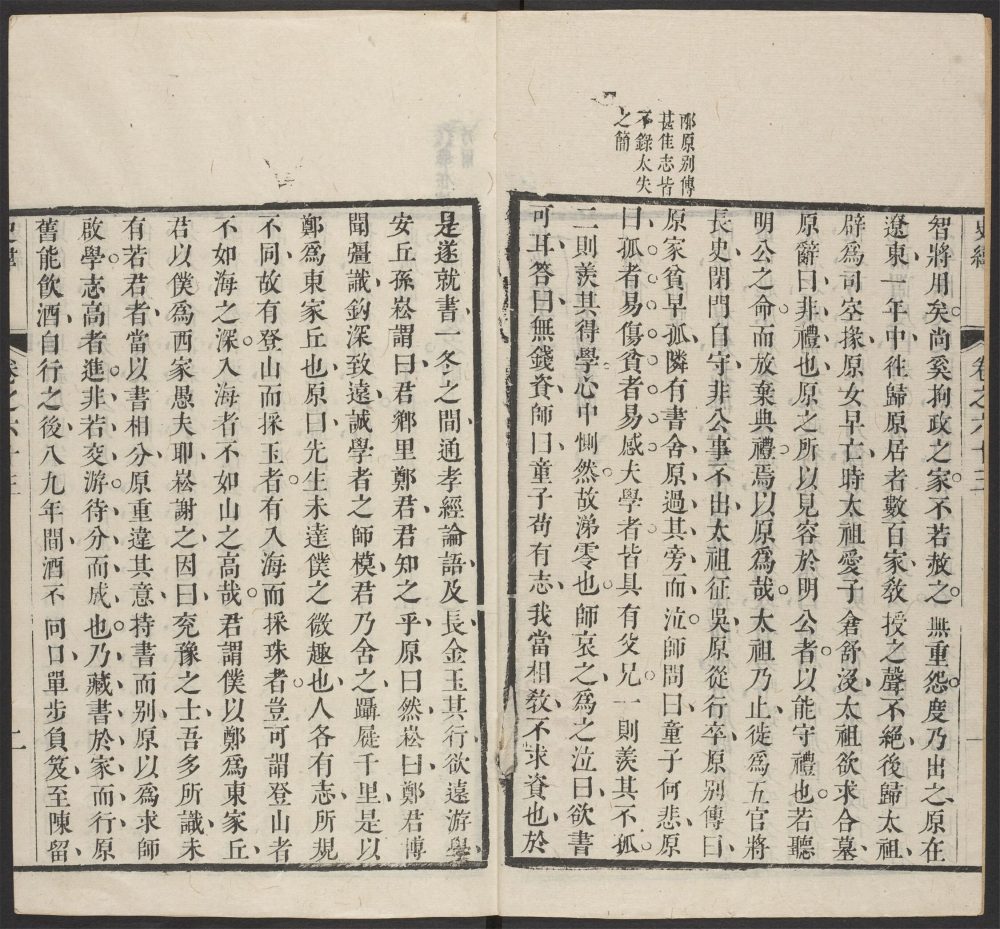 邴原別傳
甚佳志皆
不錄太失
之簡
智將用矣尚奚拘政之家不若赦之無重怨度乃出之原在
遼東一年中往歸原居者數百家敎授之聲不絕後歸太祖
辟爲司空掾原女早亡時太祖愛子倉舒沒太祖欲求合墓
原辭曰非禮也原之所以見容於明公者以能守禮也若聽
明公之命而放棄典禮焉以原爲哉太祖乃止徙爲五官將
長史閉門自守非公事不出太祖征吳原從行卒原別傳曰
原家貧早孤隣有書舍原過其旁而泣師問曰童子何悲原
曰孤者易傷貧者易感夫學者皆具有父兄一則羨其不孤
二則羨其得學心中惻然故涕零也師哀之爲之泣曰欲書
可耳答曰無錢資師曰童子苟有志我當相敎不求資也於
卷之六十三
一
是遂就書一冬之間通孝經論語及長金玉其行欲遠游學
安丘孫崧謂曰君鄉里鄭君君知之乎原曰然崧曰鄭君博
聞彊識鈎深致遠誠學者之師模君乃舍之躡屣千里是以
鄭爲東家丘也原曰先生未達僕之微趣也人各有志所規
不同故有登山而採玉者有入海而採珠者豈可謂登山者
不如海之深入海者不如山之高哉君謂僕以鄭爲東家丘
君以僕爲西家愚夫耶崧謝之因曰兖豫之士吾多所識未
有若君者當以書相分原重違其意持書而別原以爲求師
啟學志高者進非若交游待分而成也乃藏書於家而行原
舊能飲酒自行之後八九年間酒不向口單步負笈至陳留
卷之六十三
二